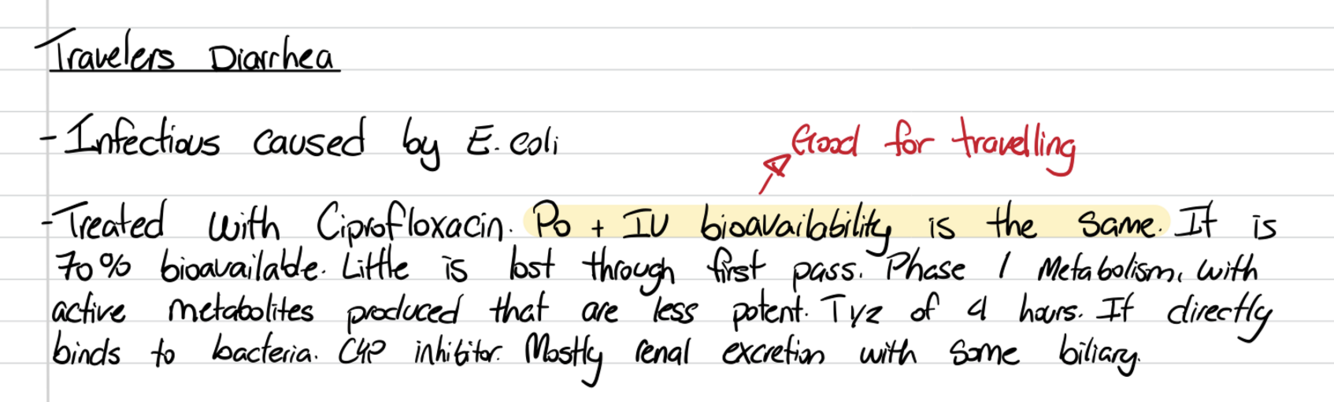 Travelers Diarrhea
- Infectious caused by E. coli
Good for travelling
- Treated with Ciprofloxacin. Po + IV bioavailability is the same. It is
70% bioavailable. Little is lost through first pass. Phase 1 Metabolism, with
active metabolites produced that are less potent. T1/2 of 4 hours. It directly
binds to bacteria. CYP inhibitor. Mostly renal excretion with some biliary.